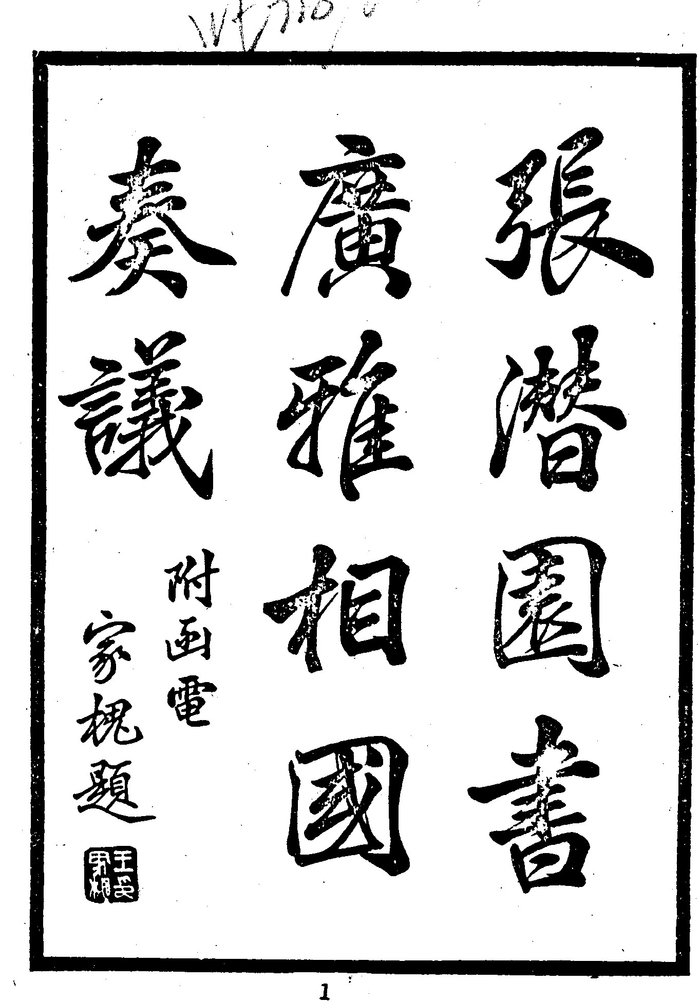 張潛園書
廣雅相國
奏議
附函電
家槐題
1